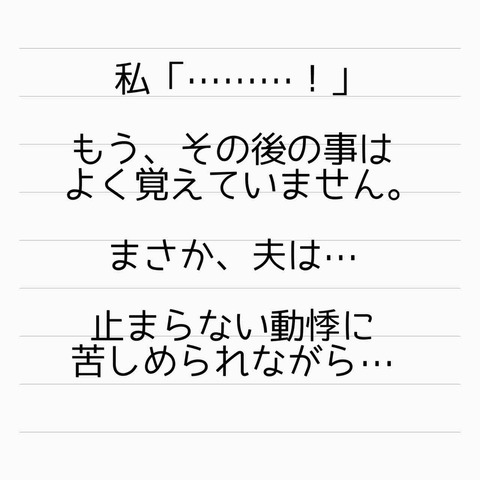 私「………！」
もう、その後の事は
よく覚えていません。
まさか、夫は…
止まらない動悸に
苦しめられながら…